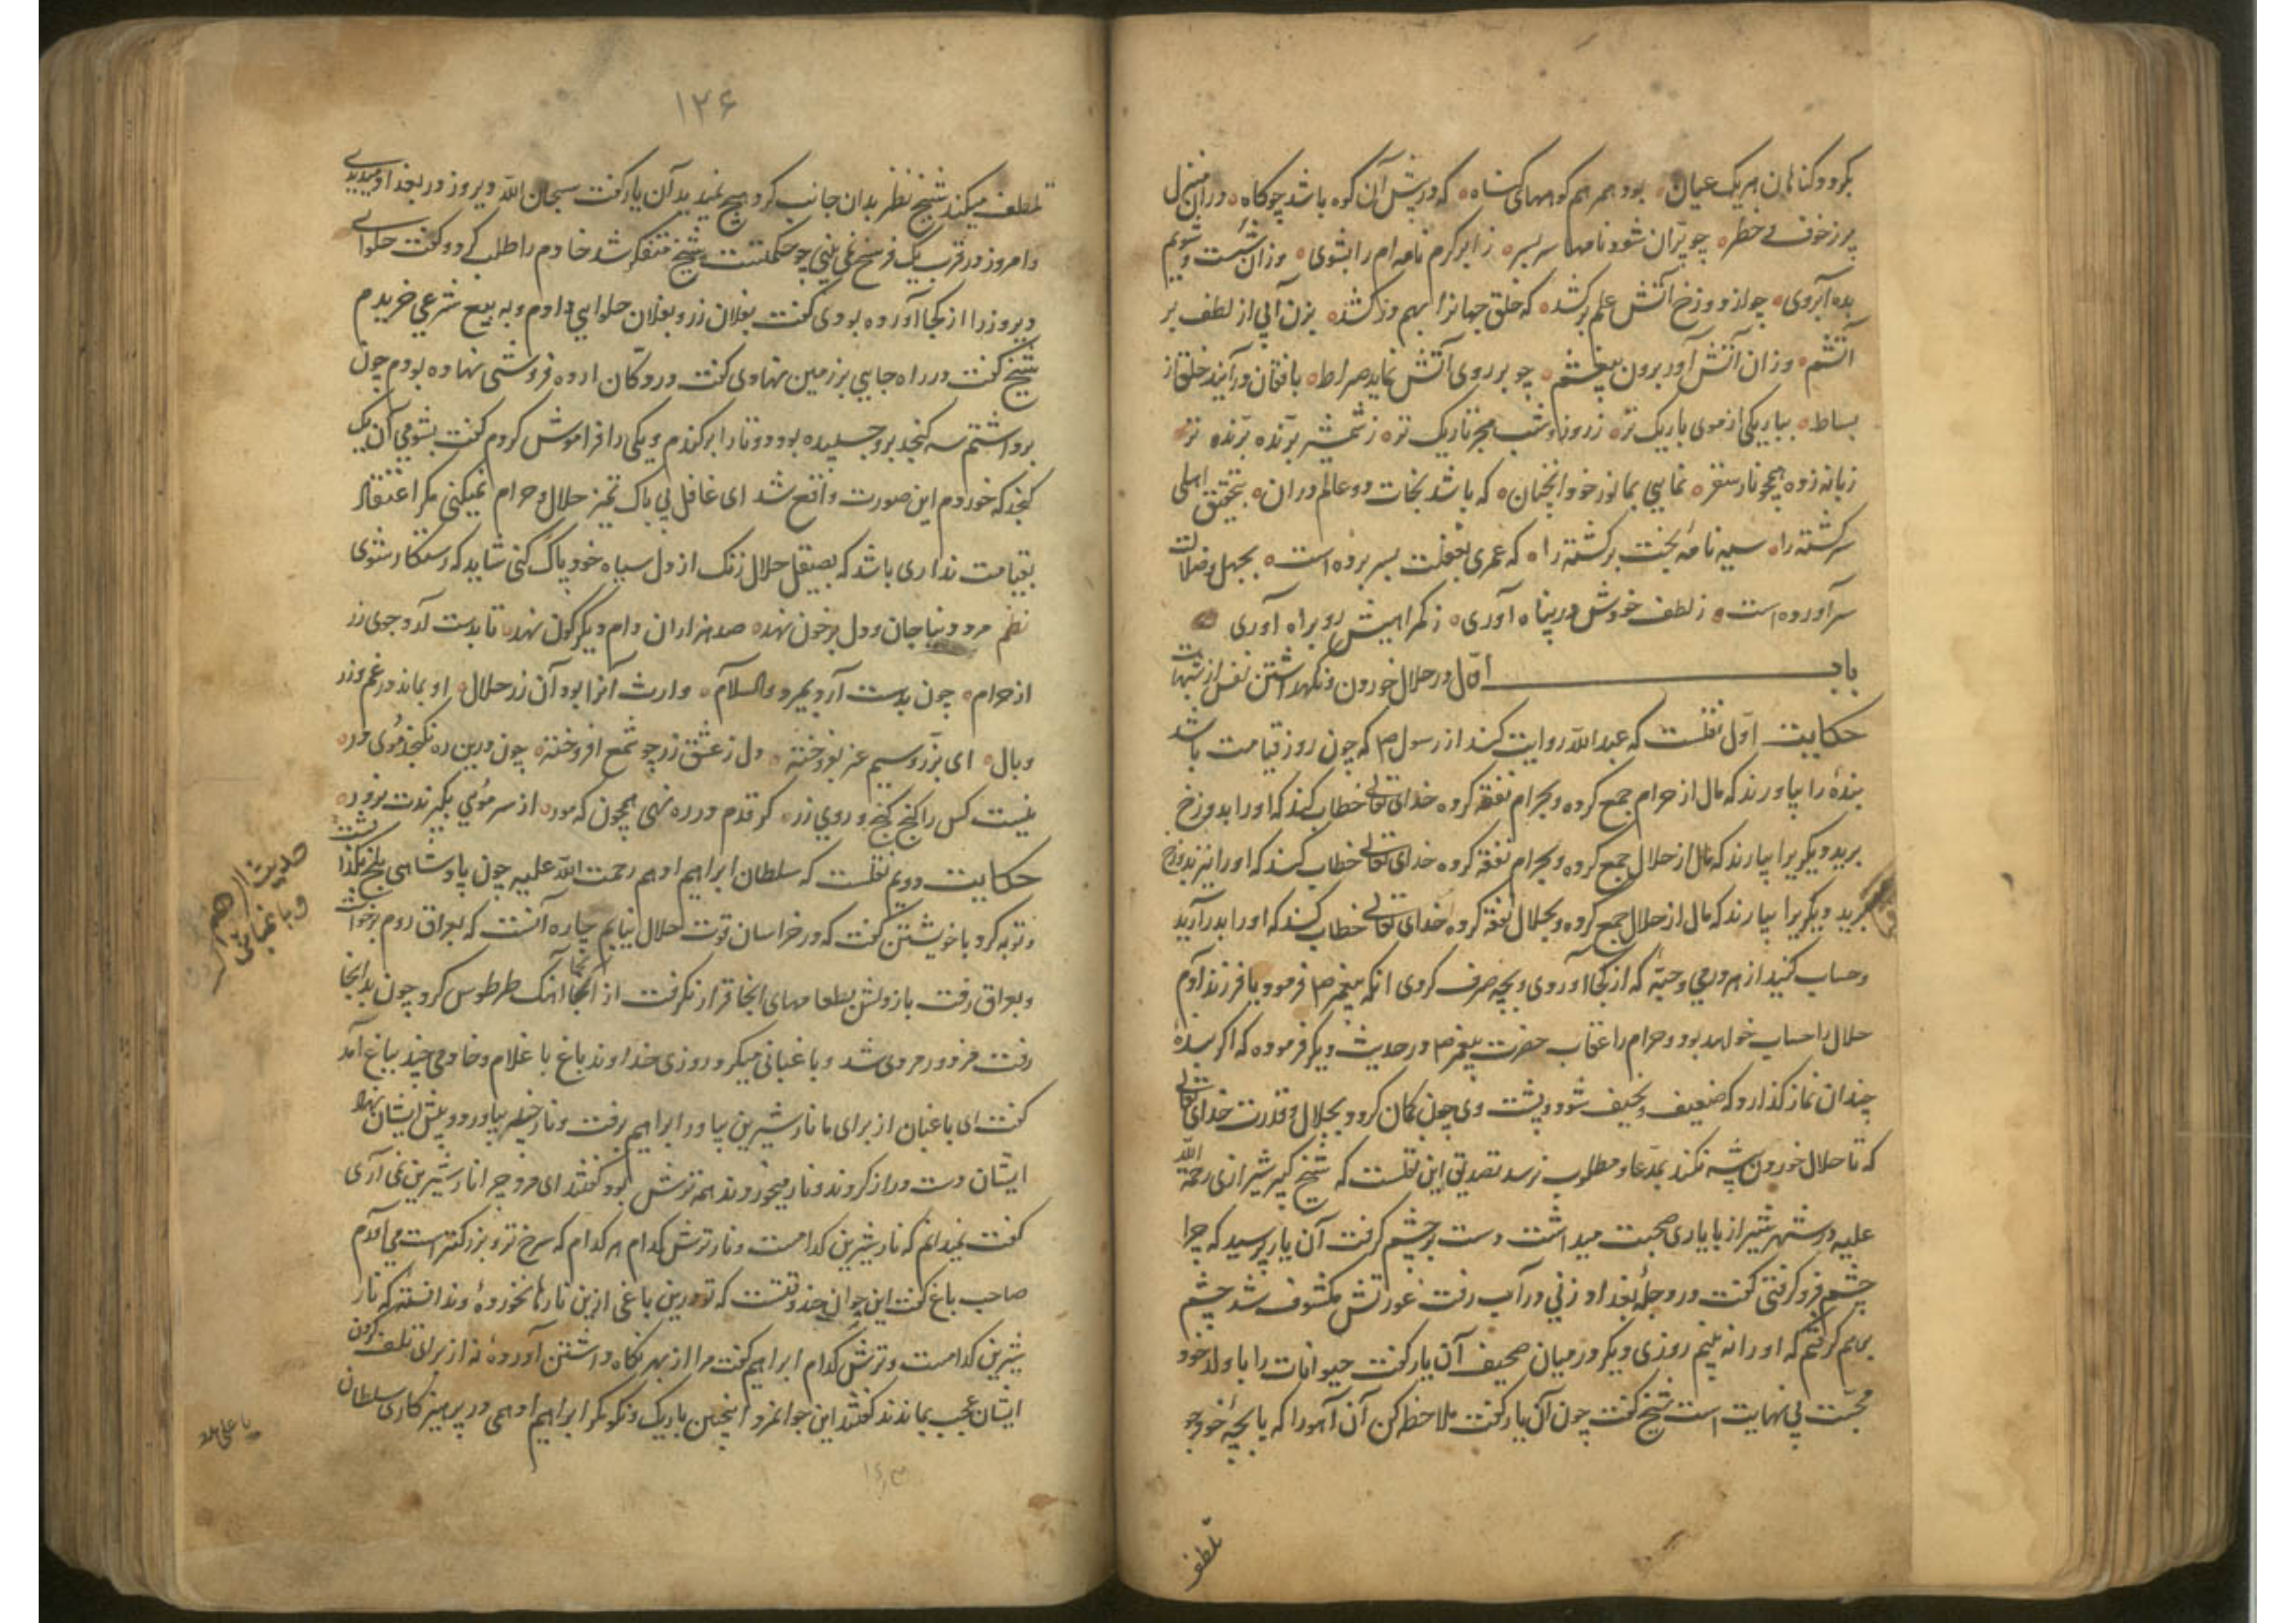 بکردد گناهان هر یک عیان بود همرهم کوههای گناه که در پیش آن کوه باشد چو کاه در آن منزل
پر ز خوف و خطر چو پران شود نامها سر بسر ز ابر کرم نامه ام را بشوی وزان شست و شویم
بده آبروی چو از دوزخ آتش علم بر کشد که خلق جهانرا بهم در کشد بزن آبی از لطف بر
آتشم وزان آتش آور برون بیغشم چو بر روی آتش نماید صراط بافغان در آیند خلق از
بساط بباریکی از موی باریک تر ز روز و شب هجر تاریک تر ز شمشیر برنده برنده تر
زبانه زده همچو نار سقر نمایی بما نور خود آنچنان که باشد نجات دو عالم در آن بتحقیق اهلی
سرگشته را سیه نامهٔ بخت برگشته را که عمری بغفلت بسر برده است بجهل و ضلالت
سر آورده است ز لطف خوشش در پناه آوری ز گمراهیش رو براه آوری
باب اول در حلال خوردن و نگهداشتن نفس از شبهات
حکایت اول نقلست که عبدالله روایت کند از رسول ص که چون روز قیامت باشد
بندهٔ را بیاورند که مال از حرام جمع کرده و بحرام نفقه کرده خدای تعالی خطاب کند که او را بدوزخ
برید و یکی را بیارند که مال از حلال جمع کرده و بحرام نفقه کرده خدای تعالی خطاب کند که او را نیز بدوزخ
برید و دیگریرا بیارند که مال از حلال جمع کرده و بحلال نفقه کرده خدای تعالی خطاب کند که او را بدر آرید
و حساب کنید از هر درمی و حبهٔ که از کجا آوردی و بچه صرف کردی آنکه پیغمبر ص فرمود یا فرزند آدم
حلال را حساب خواهد بود و حرام را عقاب حضرت پیغمبر ص در حدیث دیگر فرموده که اگر بندهٔ
چندان نماز گذارد که ضعیف و نحیف شود و پشت وی چون کمان گردد بجلال و قدرت خدای تعالی
که تا حلال خوردن پیشه نکند بمدعا و مطلوب نرسد تصدیق این نقلست که شیخ کبیر شیرازی رحمة الله
علیه در شهر شیراز با یاری صحبت میداشت دست بر چشم گرفت آن یار پرسید که چرا
چشم فرو گرفتی گفت در دجلهٔ بغداد زنی در آب رفت عورتش مکشوف شد چشم
بر هم گرفتم که او را نه بینم روزی دیگر در میان صحیف آن یار گفت حیوانات را با ولد خود
محبت بی نهایت است شیخ گفت چون آن یار گفت ملاحظه کن آن آهو را که با بچهٔ خود چو
تلطف
۱۲۶
تلطف میکند شیخ نظر بدان جانب کرد هیچ ندید آن یار گفت سبحان الله دیروز در بغداد میدیدی
و امروز در قرب یک فرسخ نمی بینی چو حکمتست شیخ متفکر شد خادم را طلب کرد و گفت حلوای
دیروز را از کجا آورده بودی گفت بفلان زر و بفلان حلوایی دادم و به بیع شرعی خریدم
شیخ گفت در راه جایی بر زمین نهادی گفت در دکان ارده فروشی نهاده بودم چون
برداشتم سه کنجد برو چسبیده بود دو تا را برکندم و یکی را فراموش کردم گفت بشومی آن یک
کنجد که خوردم این صورت واقع شد ای غافل بی باک تمیز حلال و حرام نمیکنی مگر اعتقاد
بقیامت نداری باشد که بصیقل حلال زنگ از دل سیاه خود پاک کنی شاید که رستگار شوی
نظم مرد دنیا جان و دل پر خون نهد صد هزاران دام دیگر گون نهد تا بدست آرد جوی زر
از حرام چون بدست آرد بمیرد والسلام وارث آنرا بود آن زر حلال او بماند در غم وزر
وبال ای بزر و سیم عمر بفروخته دل ز عشق زر چو شمع افروخته چون درین ره نگنجد موی در
نیست کس را گنج گنج و روی زر گر قدم در ره نهی همچون که مور از سر مویی بگیرندت بزور
حکایت دویم نقلست که سلطان ابراهیم ادهم رحمت الله علیه چون پادشاهی بلخ بگذاشت
و توبه کرد با خویشتن گفت که در خراسان قوت حلال نیابم چاره آنست که بعراق روم برخواست
و بعراق رفت باز دلش بطعامهای آنجا قرار نگرفت از آنجا آهنگ طرطوس کرد چون بدانجا
رفت مزدور مردی شد و باغبانی میکرد روزی خداوند باغ با غلام و خادمی چند بباغ آمد
گفت ای باغبان از برای ما نار شیرین بیاور ابراهیم برفت و نار چند بیاورد و پیش ایشان نهاد
ایشان دست دراز کردند و نار میخوردند همه ترش بود گفتند ای مرد چرا نار شیرین نمی آری
گفت نمیدانم که نار شیرین کدامست و نار ترش کدام هر کدام که سرخ تر و بزرگتر است می آورم
صاحب باغ گفت این جوان چند وقتست که تو درین باغی ازین نارها نخوردهٔ و ندانستهٔ که نار
شیرین کدامست و ترش کدام ابراهیم گفت مرا از بهر نگاه داشتن آوردهٔ نه از برای تلف کردن
ایشان عجب بماندند گفتند این جوانمرد اینچنین باریک و نکو مگر ابراهیم ادهمی در پرهیزکاری سلطان
حدیث ابراهیم
و باغبانی